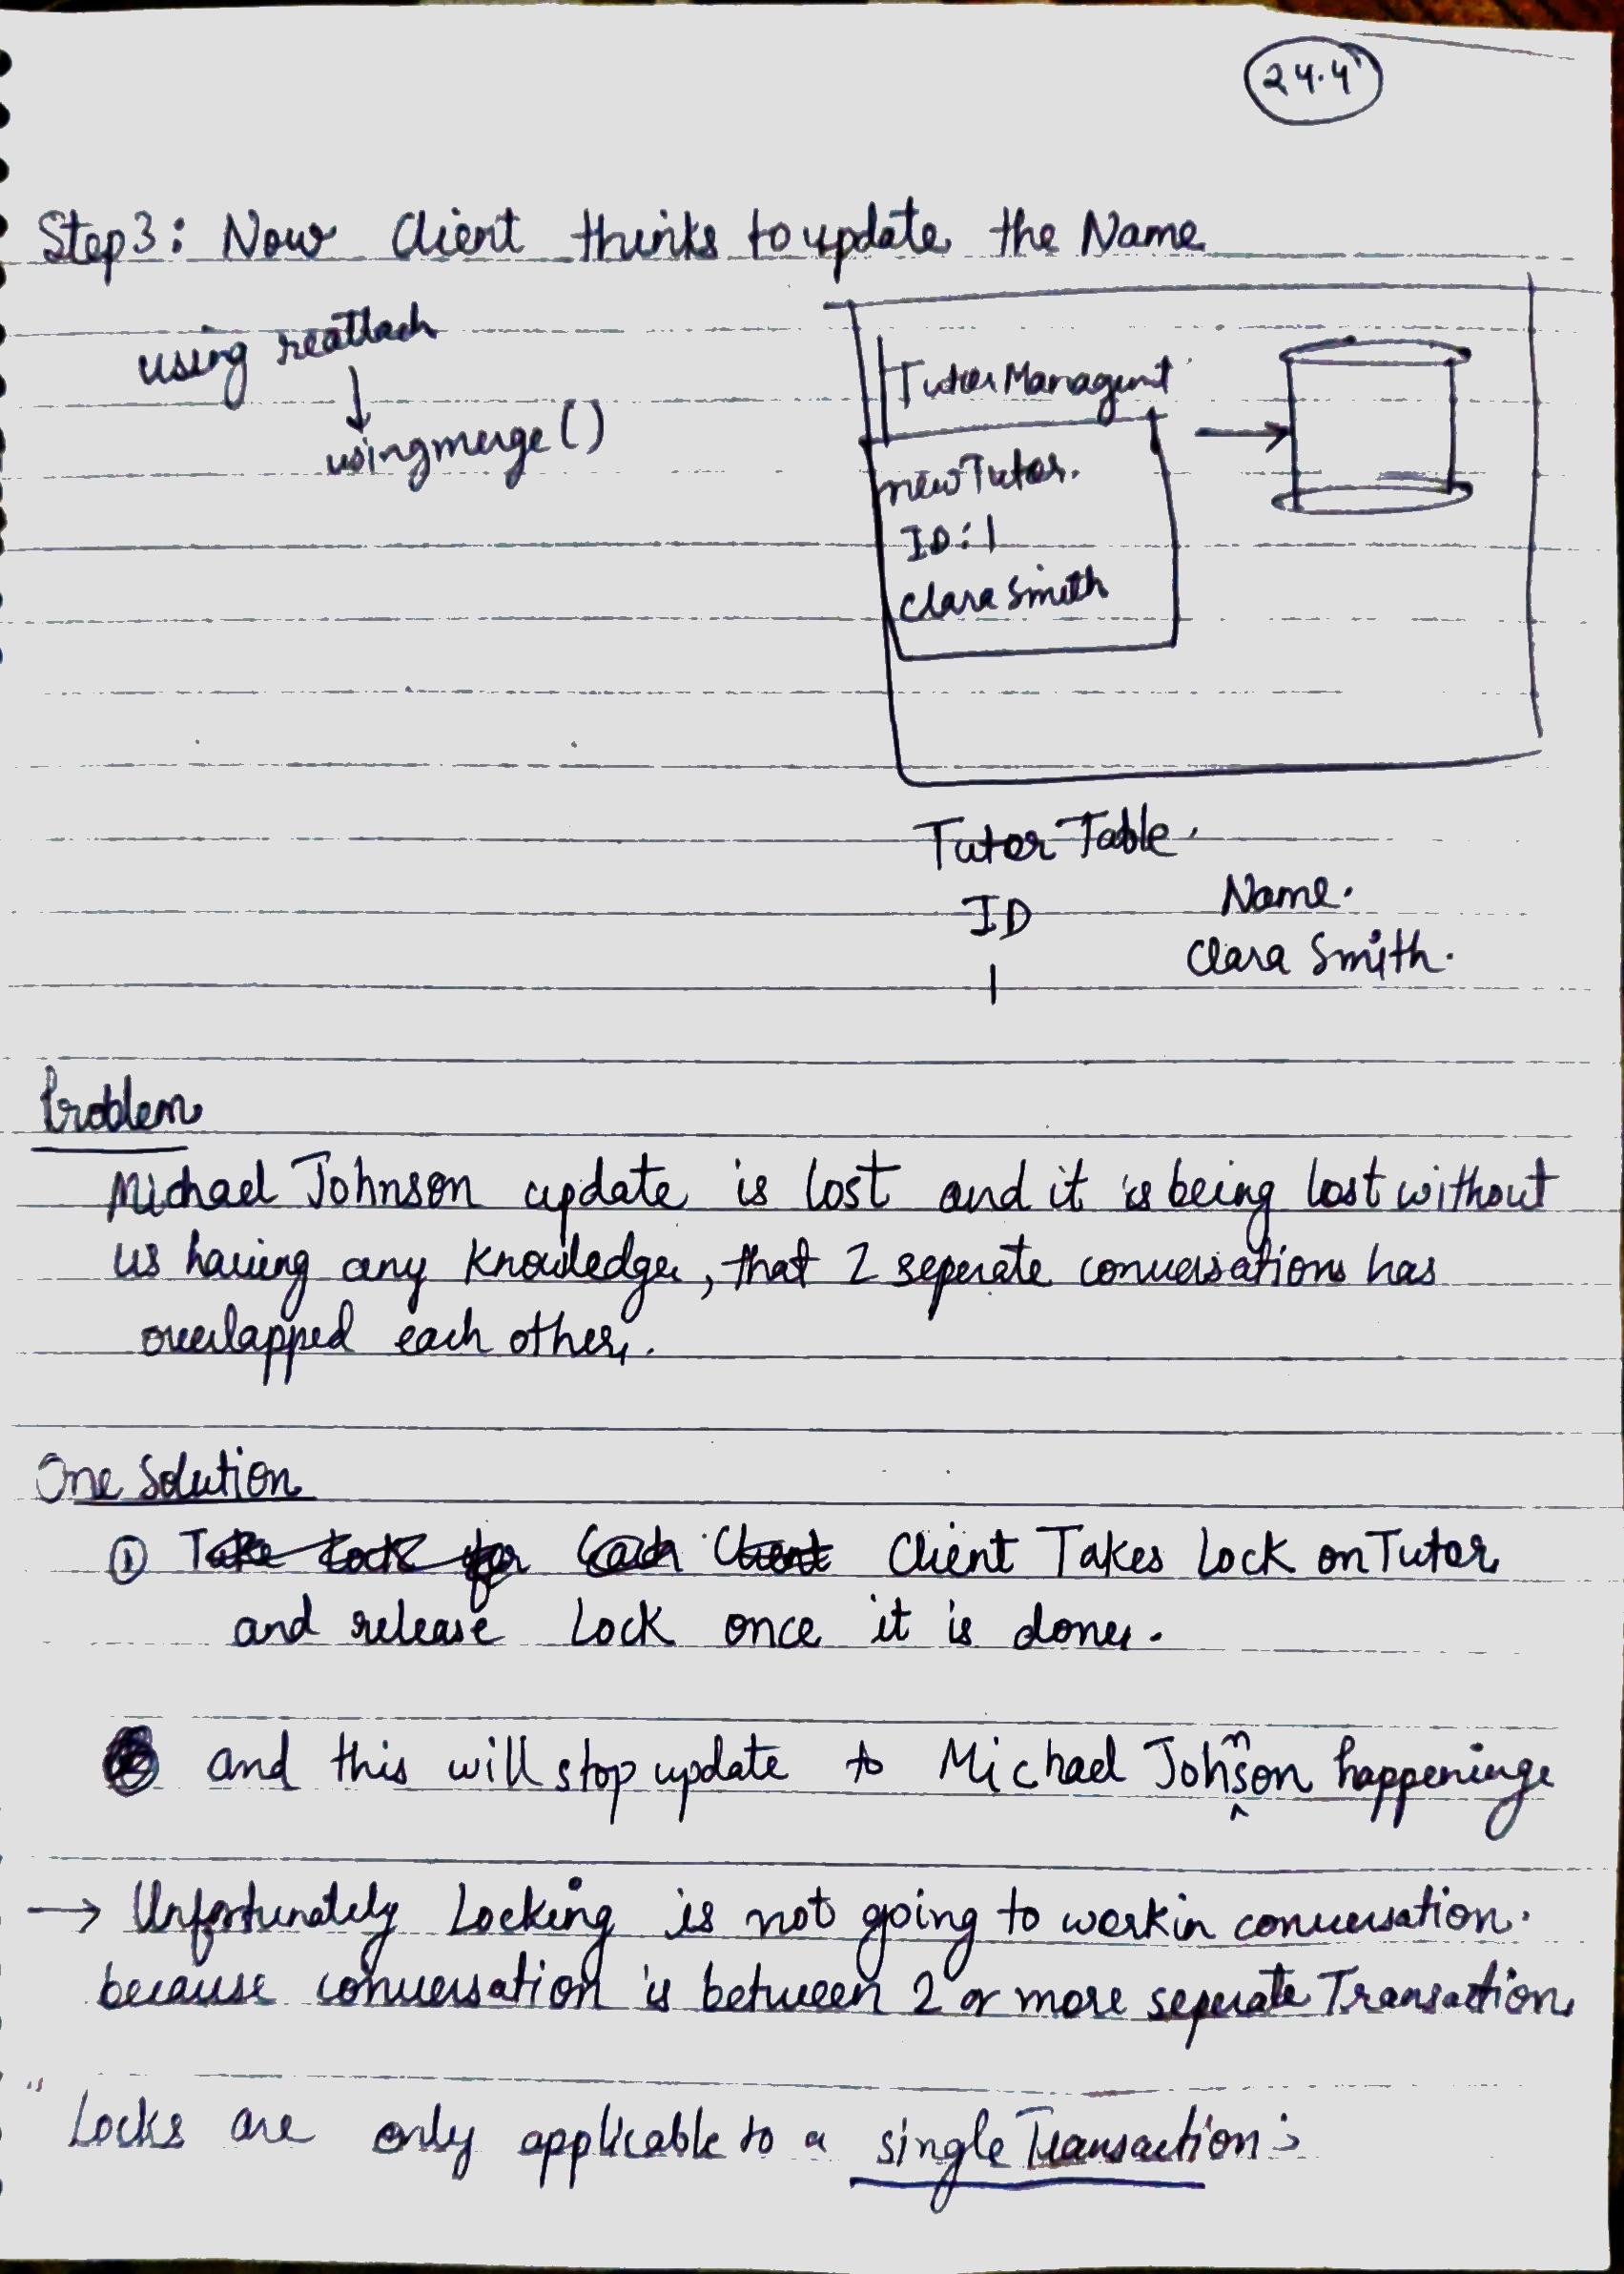 24.4
Step3: Now Client thinks to update the Name
using reattach
using merge()
Tutor Managemt
new Tutor.
ID: 1
Clara Smith
Tutor Table.
ID Name.
1 Clara Smith.
Problem
Michael Johnson update is lost and it is being lost without
us having any knowledge, that 2 seperate conversations has
overlapped each other.
One Solution
① Take Lock for Each Client Client Takes Lock on Tutor
and release Lock once it is done.
and this will stop update to Michael Johnson happeninge
→ Unfortunately Locking is not going to work in conversation.
because conversation is between 2 or more seperate Transaction
" Locks are only applicable to a single Transaction: